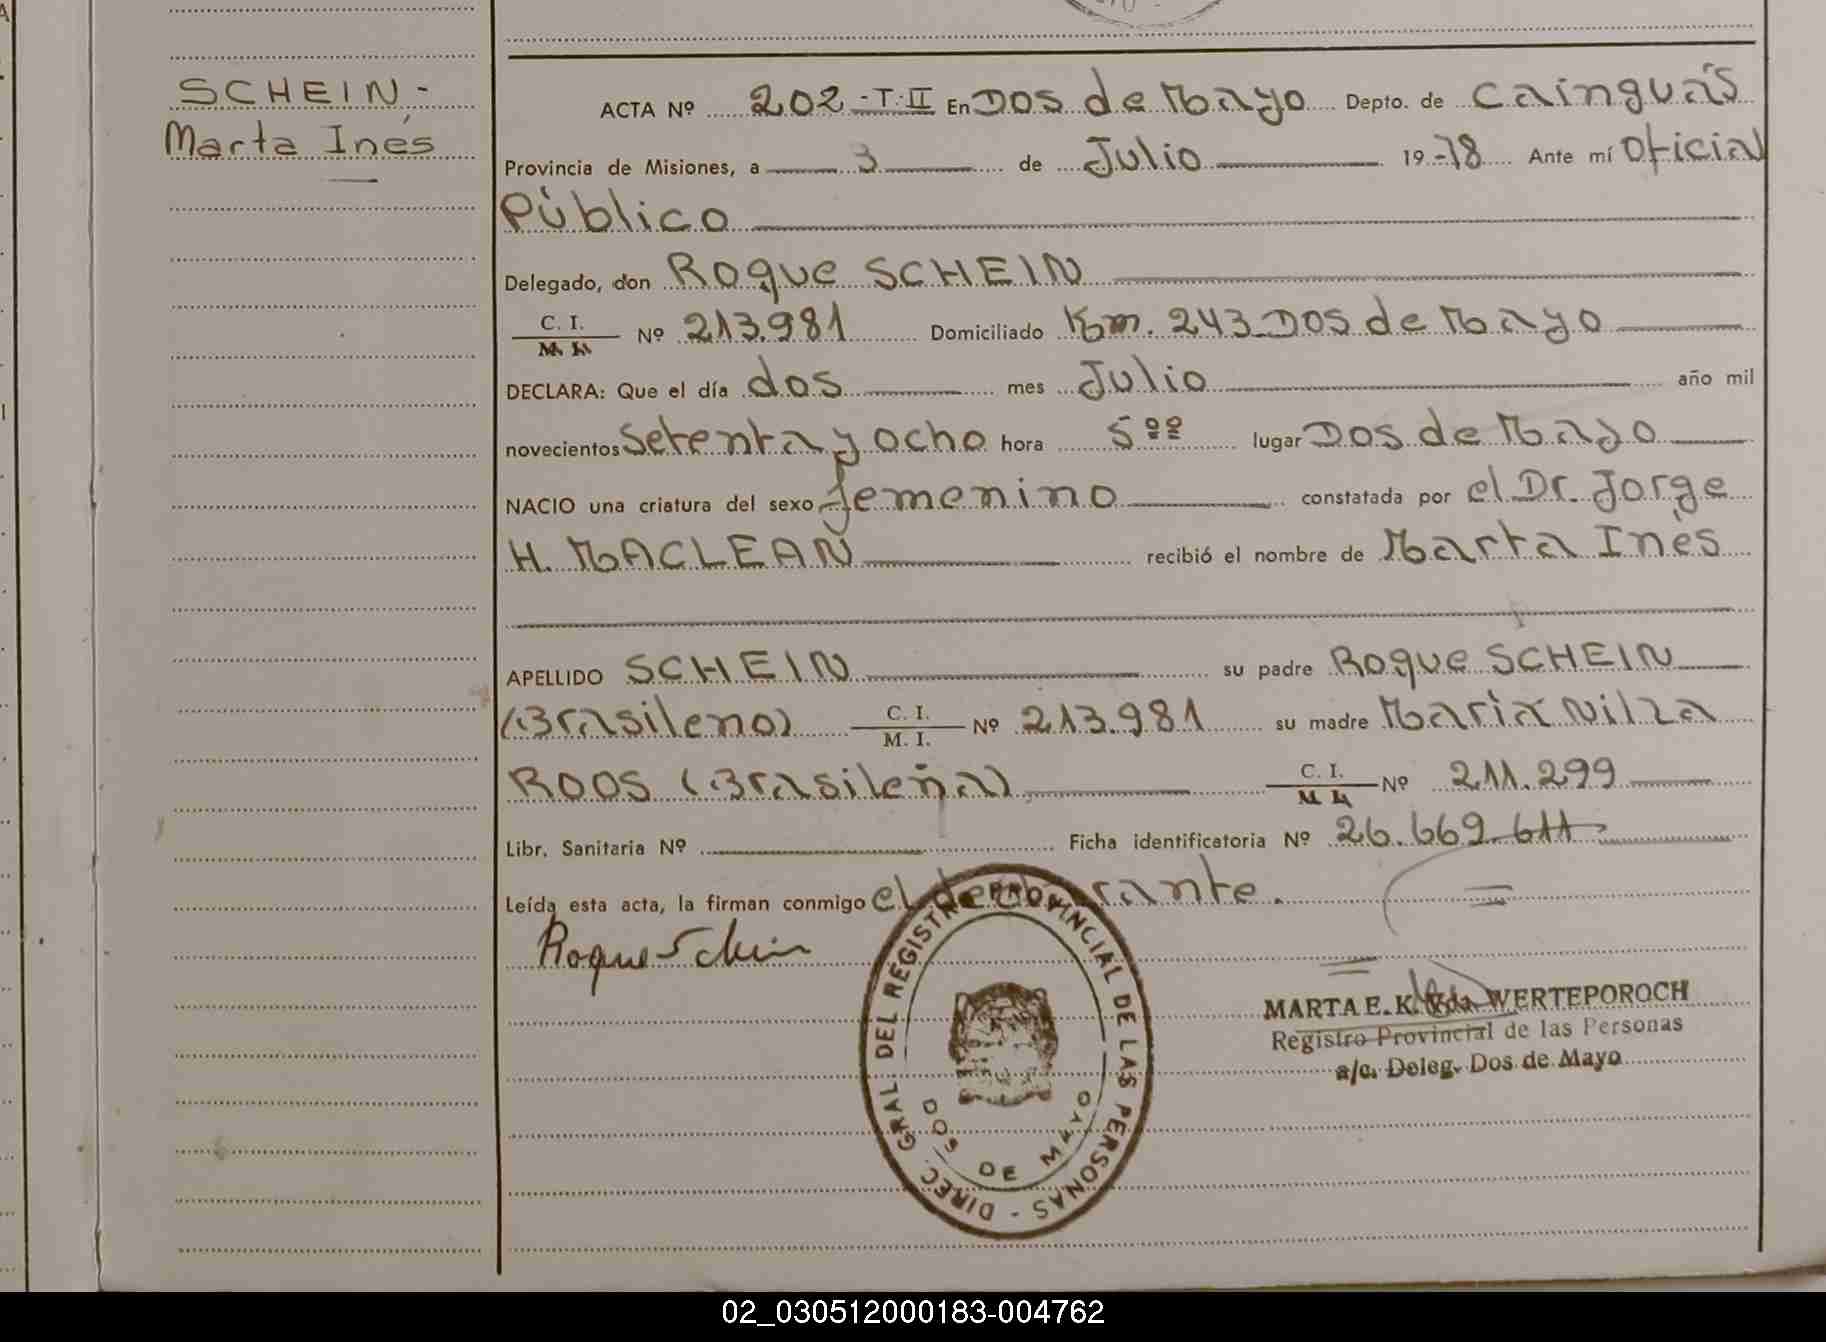 SCHEIN-
Marta Inés
ACTA Nº 202-T-II En DOS de Mayo Depto. de Cainguás
Provincia de Misiones, a 3 de Julio 19-78 Ante mí Oficial
Público
Delegado, don Roque SCHEIN
C. I.
M. I. Nº 213.981 Domiciliado Km. 243-DOS de Mayo
DECLARA: Que el día dos mes Julio año mil
novecientos setenta y ocho hora 5ºº lugar DOS de Mayo
NACIO una criatura del sexo femenino constatada por el Dr. Jorge
H. MACLEAN recibió el nombre de Marta Inés
APELLIDO SCHEIN su padre Roque SCHEIN
(Brasileno) C. I.
M. I. Nº 213.981 su madre María Nilza
ROOS (Brasileña) C. I.
M. I. Nº 211.299
Libr. Sanitaria Nº Ficha identificatoria Nº 26.669.611
Leída esta acta, la firman conmigo el declarante.
Roque Schein
DIREC. GRAL. DEL REGISTRO PROVINCIAL DE LAS PERSONAS -
DOS DE MAYO
MARTA E. K. Vda. WERTEPOROCH
Registro Provincial de las Personas
a/c. Deleg. Dos de Mayo
02_030512000183-004762